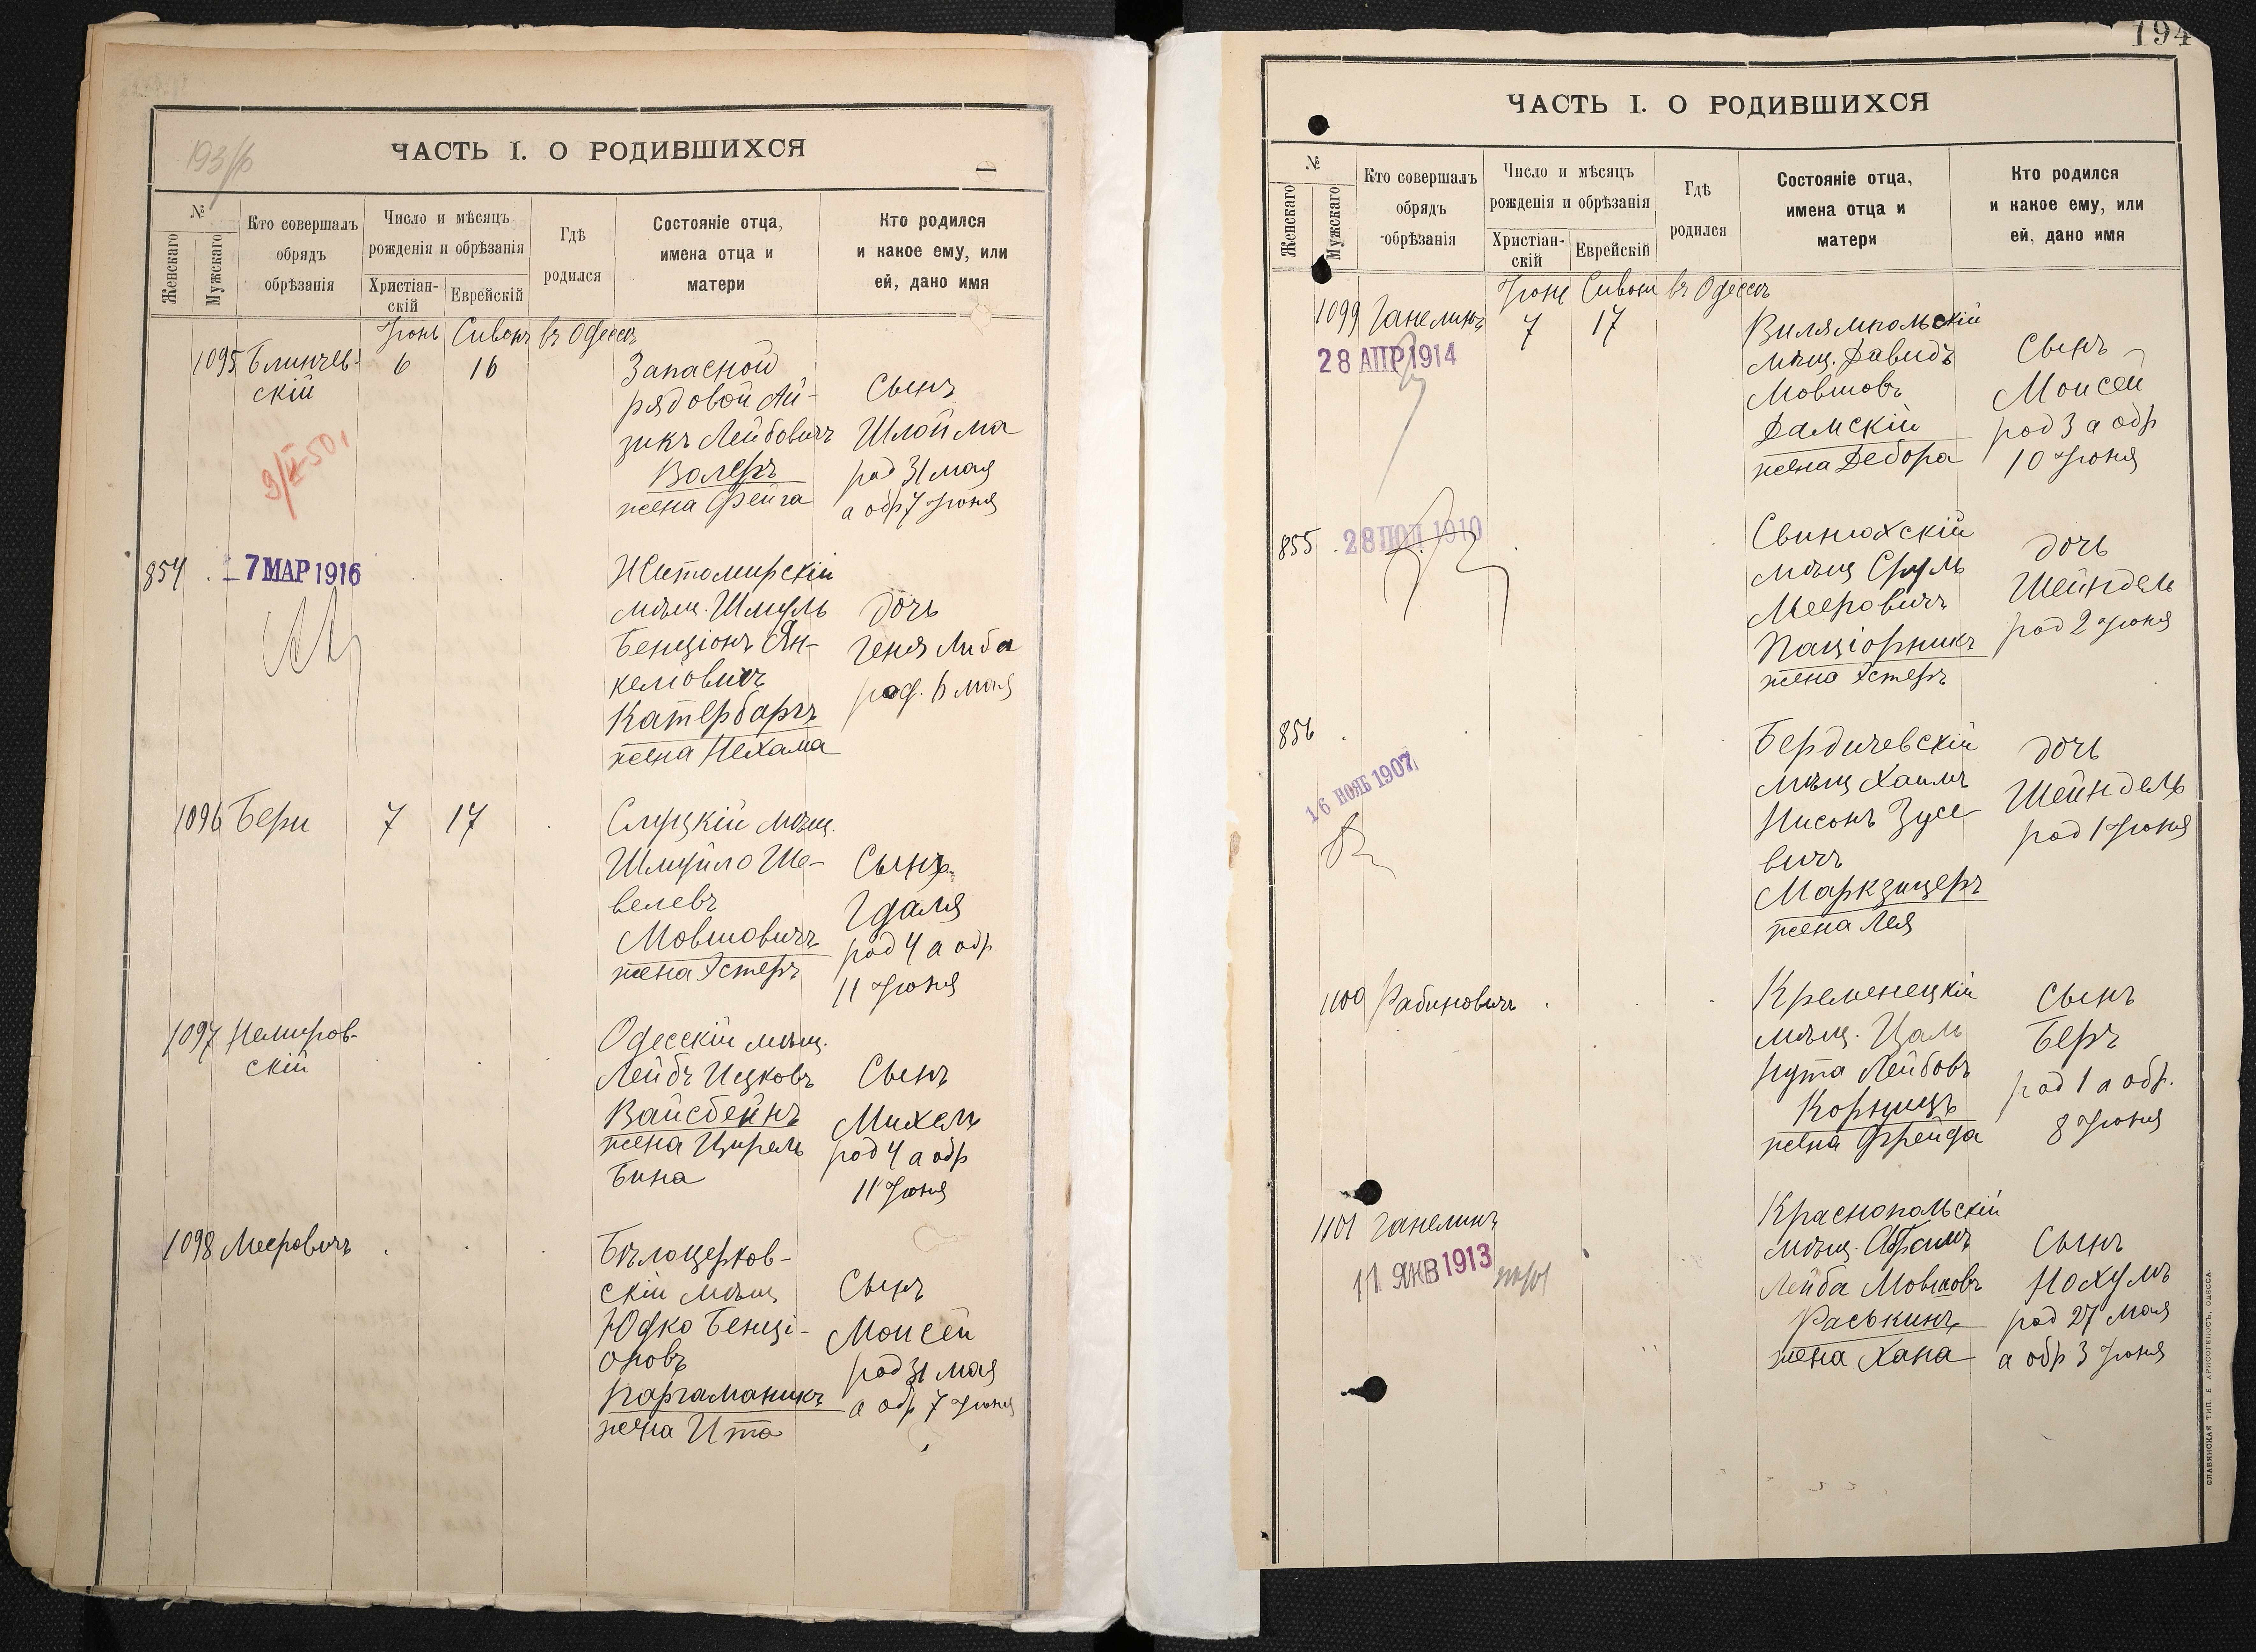 193/об
ЧАСТЬ I. О РОДИВШИХСЯ
№
Женскаго
Мужскаго
Кто совершалъ
обрядъ
обрѣзанія
Число и мѣсяцъ
рожденія и обрѣзанія
Христіан-
скій
Еврейскій
Гдѣ
родился
Состояніе отца,
имена отца и
матери
Кто родился
и какое ему, или
ей, дано имя
Іюнь Сивонъ въ Одессѣ
1095 Блинчев-
скій
6 16
Запасной
рядовой Ай-
зикъ Лейбовичъ
Волеръ
жена Фейга
Сынъ
Шлойма
род 31 мая
а обр 7 Іюня
9/II-50
854
- 7 МАР 1916
Житомирскій
мѣщ. Шмуль
Бенціонъ Ян-
келіовичъ
Катербаргъ
жена Нехама
дочь
Геня Либа
род. 6 мая
1096 Бери 7 17
Слуцкій мѣщ.
Шмуйло Ше-
велевъ
Мовшовичъ
жена Эстеръ
Сынъ
Гдаля
род 4 а обр
11 Іюня
1097 Немиров-
скій
Одесскій мѣщ.
Лейбъ Ицковъ
Вайсбейнъ
жена Цирель
Бина
Сынъ
Михель
род 4 а обр
11 Іюня
1098 Мееровичъ
Бѣлоцерков-
скій мѣщ
Юдко Бенці-
оновъ
Паргаманикъ
жена Ита
Сынъ
Моисей
род 31 мая
а обр 7 Іюня
194
ЧАСТЬ I. О РОДИВШИХСЯ
№
Женскаго
Мужскаго
Кто совершалъ
обрядъ
обрѣзанія
Число и мѣсяцъ
рожденія и обрѣзанія
Христіан-
скій
Еврейскій
Гдѣ
родился
Состояніе отца,
имена отца и
матери
Кто родился
и какое ему, или
ей, дано имя
Іюнь Сивонъ въ Одессѣ
1099 Ганелинъ 7 17
28 АПР 1914
Вилямпольскій
мѣщ. Давидъ
Мовшовъ
Дамскій
жена Дебора
Сынъ
Моисей
род 3 а обр
10 Іюня
855
28 1910
Свинюхскій
мѣщ Сруль
Мееровичъ
Паціорникъ
жена Эстеръ
дочь
Шейндель
род 2 Іюня
856
16 НОЯБ 1907
Бердичевскій
мѣщ Хаимъ
Нисонъ Зусе
вичъ
Маркзицеръ
жена Лея
дочь
Шейндель
род 1 Іюня
1100 Рабиновичъ
Кременецкій
мѣщ. Цаль
Нута Лейбовъ
Корницъ
жена Фрейда
Сынъ
Беръ
род 1 а обр.
8 Іюня
1101 Ганелинъ
11 ЯНВ 1913
Краснопольскій
мѣщ. Абрамъ
Лейба Мовшовъ
Раськинъ
жена Хана
Сынъ
Нохумъ
род 27 мая
а обр 3 Іюня
СЛАВЯНСКАЯ ТИП. Е. ХРИСОГЕЛОСЪ, ОДЕССА.